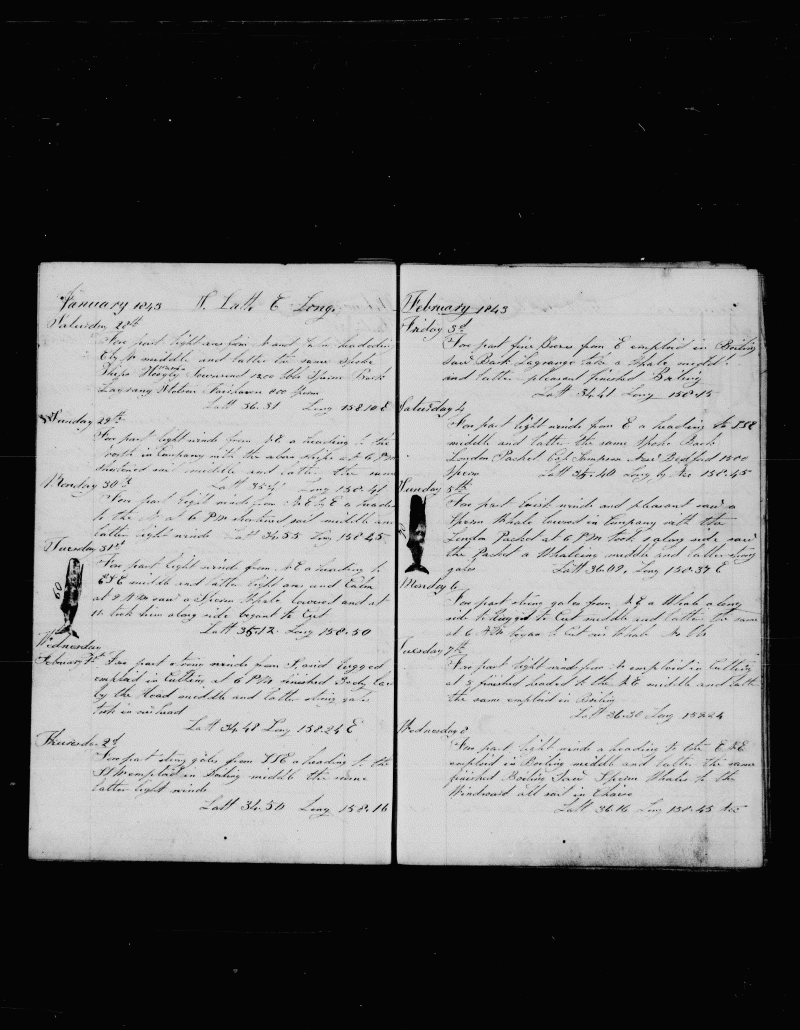 January 1843 N. Latt, E Long,
Saturday 28th
Fore part light airs from
middle and latter the same Spoke
Ships 1200 bbls Sperm Bark
Fairhaven 800 Sperm
Latt 36.31 Long 158.10 E
Sunday 29th
Fore part light winds from NE a heading to the
in Company with the above ships at 6 PM
shortened sail middle and latter the same
Long 158.41
Monday 30th
Fore part light winds from NE by E a heading
to the N at 6 PM shortened sail middle and
latter light winds Latt 34.55 Long 158.45
Tuesday 31st
Fore part light winds from NE a heading to
ESE middle and latter light airs and Calm
at 9 AM saw a Sperm Whale lowered and at
11 took him along side began to Cut
60
Latt 35.12 Long 158.50
Wednesday
February 1st Fore part strong winds from S and rugged
emploid in Cutting at 6 PM finished Body
by the Head middle and latter strong gales
took in our head
Latt 34.48 Long 158.24 E
Thursday 2d
Fore part strong gales from a heading to the
emploid in Boiling middle the same
latter light winds
Latt 34.54 Long 158.16
February 1843
Friday 3d
Fore part fine Breeses from E emploid in Boiling
saw Bark Lagrange take a Whale middle
and latter pleasant finished Boiling
Latt 34.41 Long 158.15
Saturday 4
Fore part light winds from E a heading to SSE
middle and latter the same Spoke Bark
London Packet Capt Simpson New Bedford 1500
Sperm Latt 35.40 Long by 158.45
Sunday 5th
Fore part brisk winds and pleasant saw a
Sperm Whale lowered in Company with the
London Packet at 6 PM took 1 along side saw
the Packet a Whaleing middle and latter strong
gales Latt 36.09, Long 158.37 E
Monday 6
Fore part strong gales from NE a Whale along
side to Rugged to Cut middle and latter the same
at 6 AM began to Cut our Whale No Ob
Tuesday 7th
Fore part light winds from N emploid in Cutting
at 3 finished headed to the NE middle and latter
the same emploid in Boiling
Latt 36.30 Long 158.24
Wednesday 8
Fore part light winds a heading to the E
emploid in Boiling middle and latter the same
finished Boiling Saw Sperm Whales to the
Windward all sail in Chaise
Latt 36.16 Long 158.45